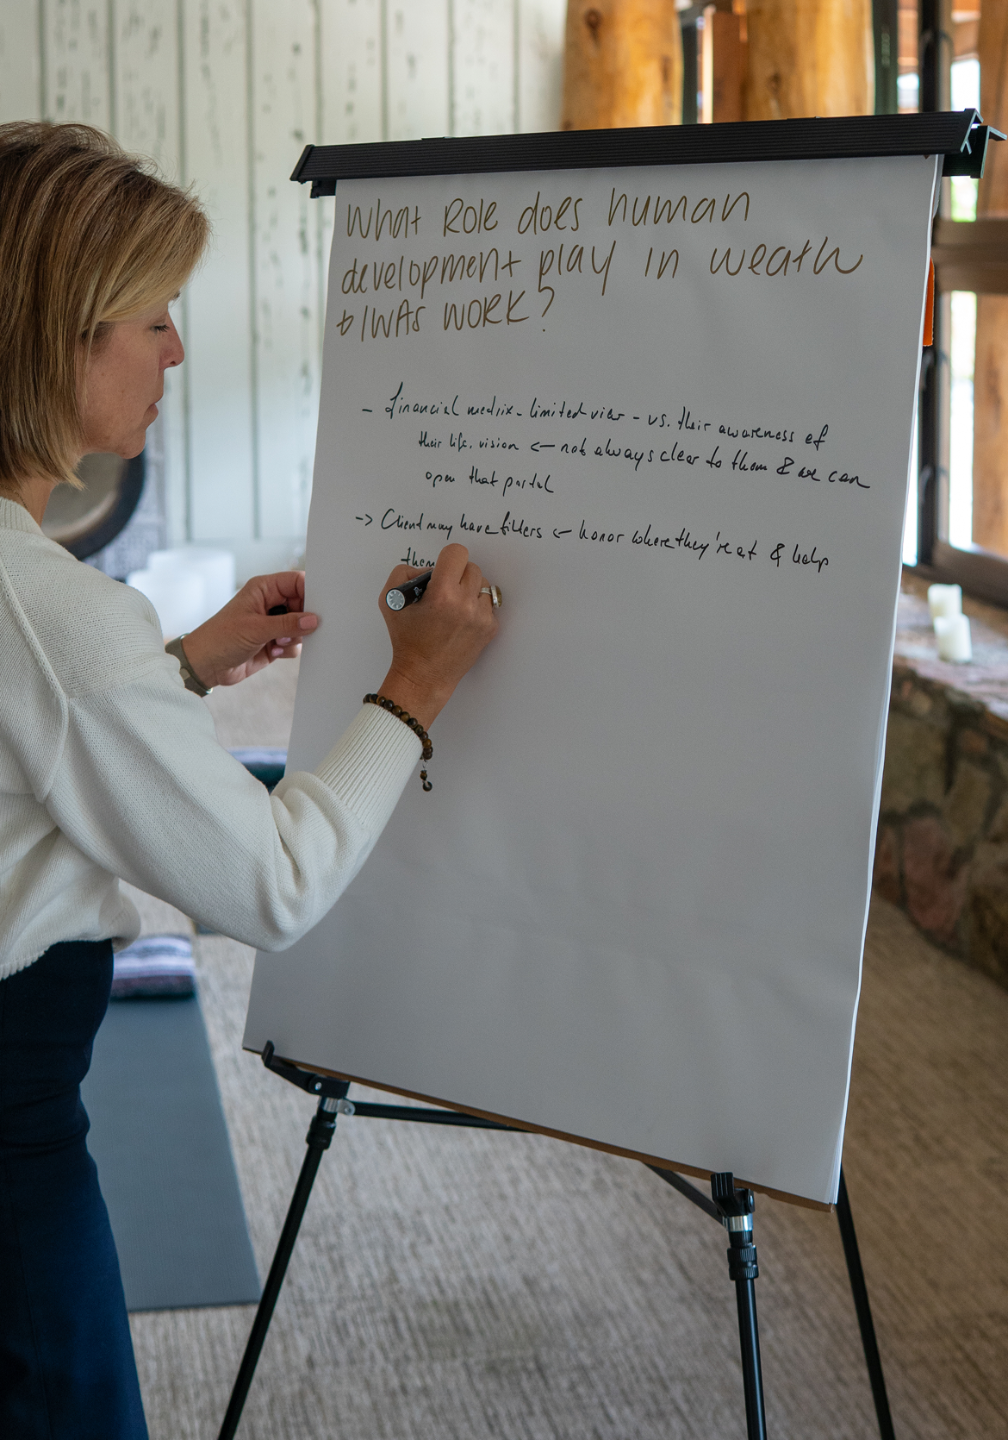 What Role does human
development play in weath
& IWAs WORK?
- financial metrix - limited view - vs. their awareness of
their life. vision ← not always clear to them & we can
open that portal
-> Client may have filters ← honor where they're at & help
them